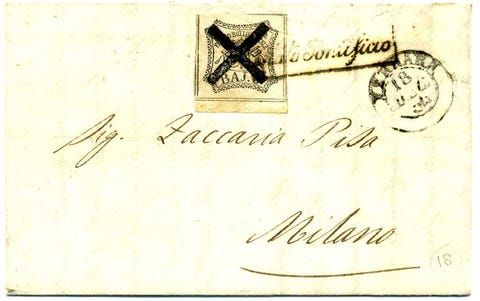 BAJ.
Pontificio
FERRARA
18
Sig. Zaccaria Pisa
Milano
18